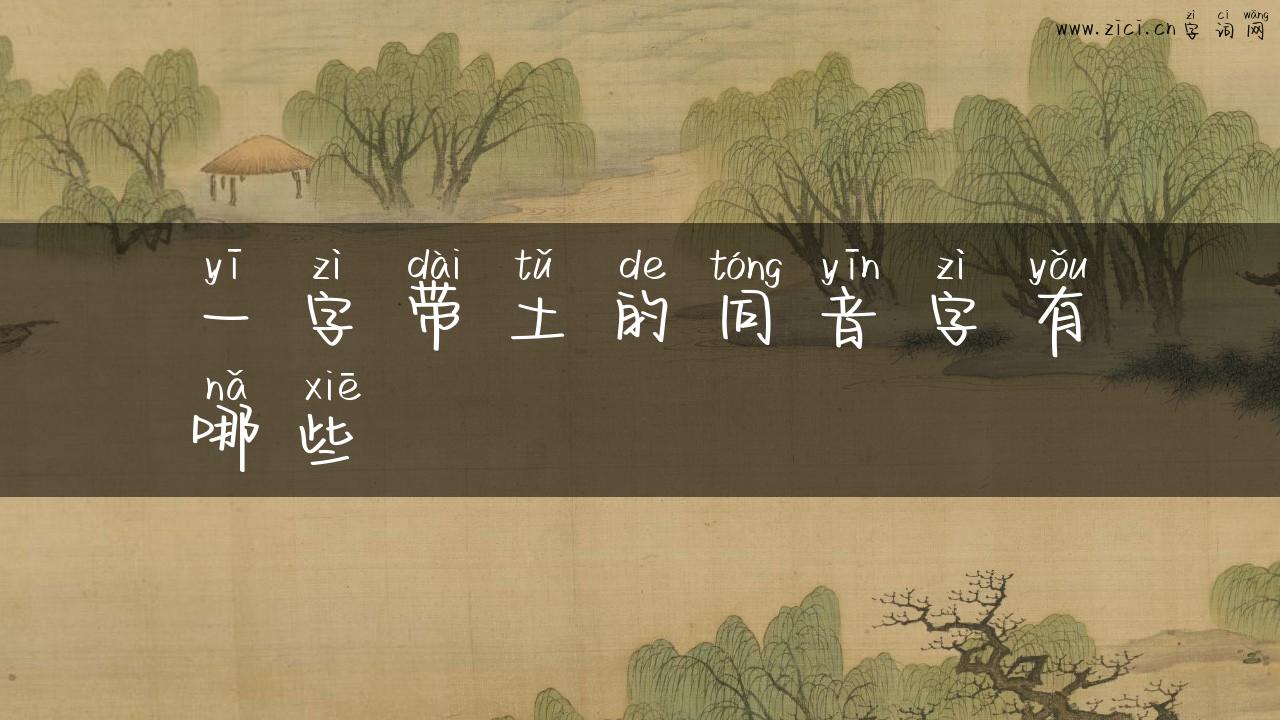 zì cí wǎng
www.zici.cn 字 词 网
yī zì dài tǔ de tóng yīn zì yǒu
一 字 带 土 的 同 音 字 有
nǎ xiē
哪 些